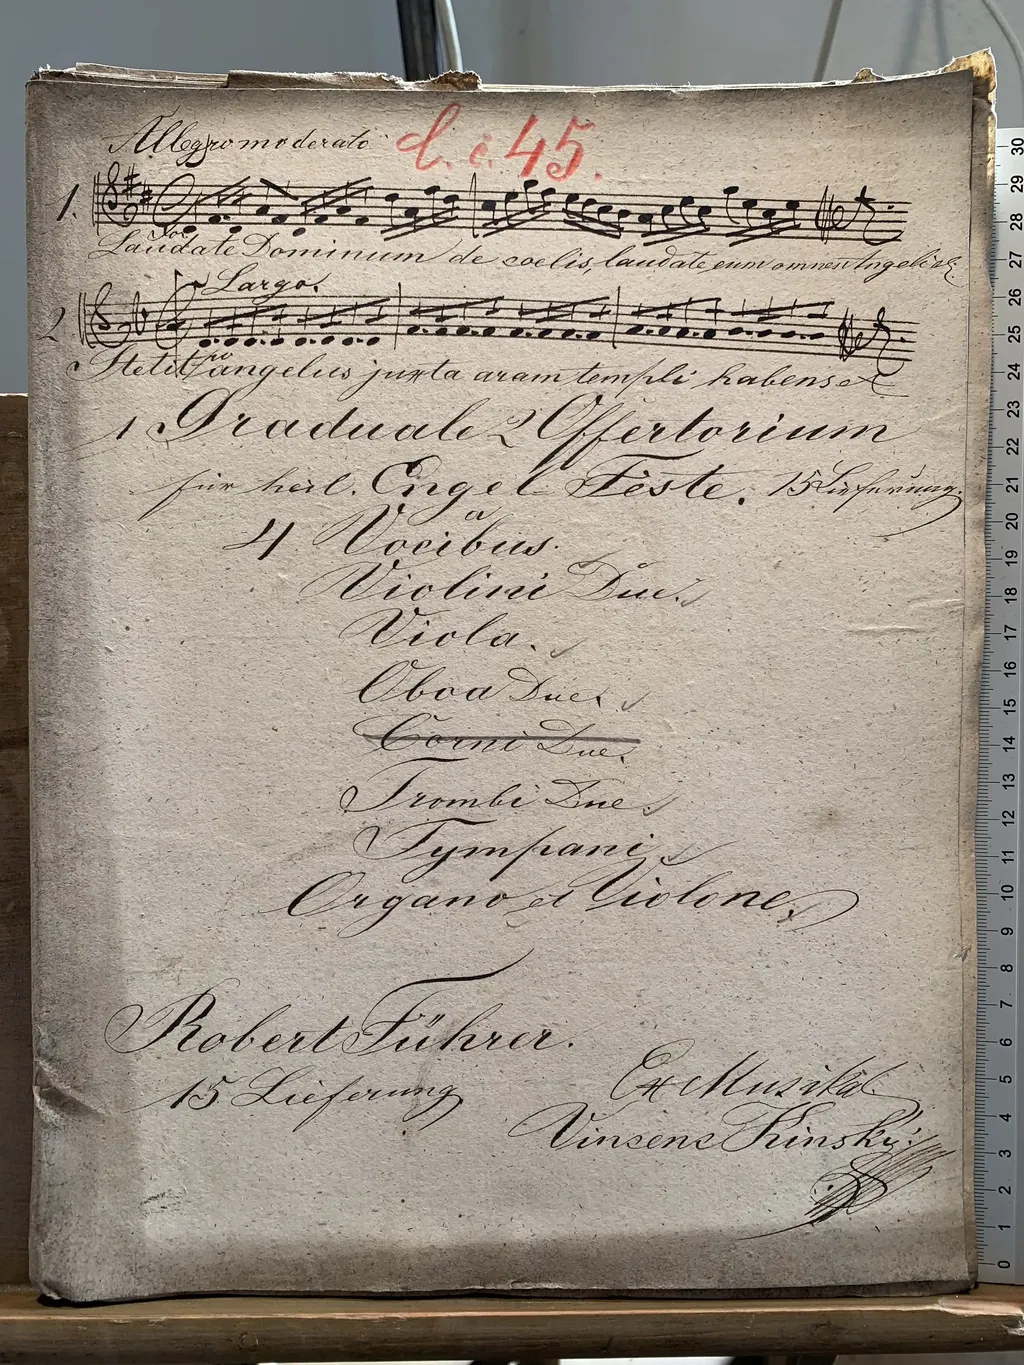 Allegro moderato č. 45.
1.
Laudate Dominum de coelis, laudate eum omnes Angeli
Largo.
2
Stetit angelus juxta aram templi habens
1 Graduale 2 Offertorium
für heil. Engel Feste. 15 Lieferung.
a
4 Vocibus.
Violini Due.
Viola.
Oboa Due.
Corni Due.
Trombi Due.
Tympani
Organo et Violone.
Robert Führer.
15 Lieferung
Ex Musikal
Vinsenc Kinský
30
29
28
27
26
25
24
23
22
21
20
19
18
17
16
15
14
13
12
11
10
9
8
7
6
5
4
3
2
1
0